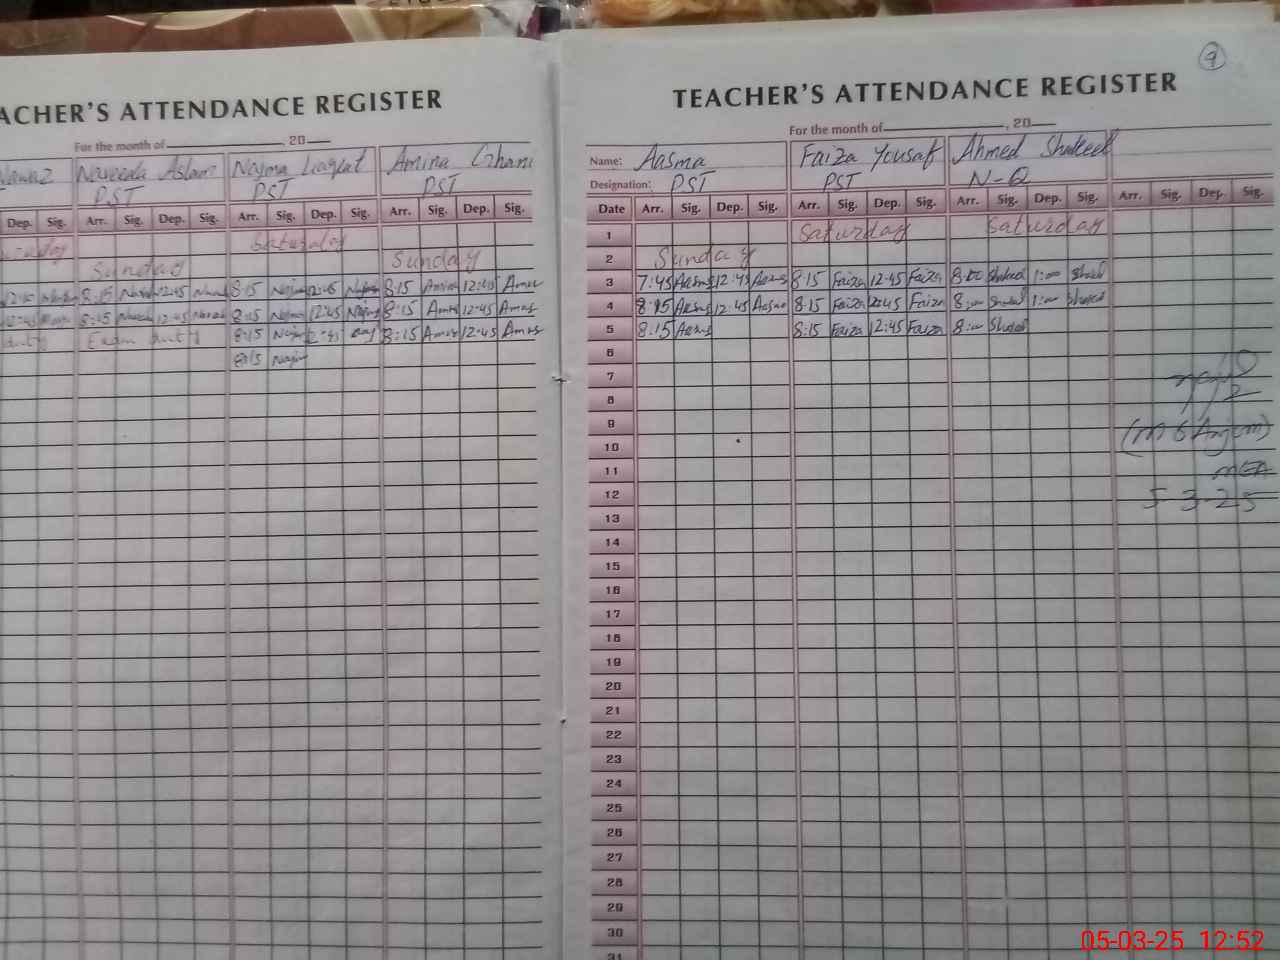 TEACHER'S ATTENDANCE REGISTER
For the month of , 20
Nawaz Naveeda Aslam Najma Liaqat Amina Ghani
PST PST PST
Dep. Sig. Arr. Sig. Dep. Sig. Arr. Sig. Dep. Sig. Arr. Sig. Dep. Sig.
Saturday
Sunday Sunday
12:45 8:15 12:45 8:15 Najma 12:45 Najma 8:15 Amina 12:45 Amna
12:45 8:15 12:45 8:15 Najma 12:45 Najma 8:15 Amna 12:45 Amna
duty Exam duty 8:15 Najma 12:45 8:15 Amna 12:45 Amna
8:15 Najma
9
TEACHER'S ATTENDANCE REGISTER
For the month of , 20
Name: Aasma Faiza Yousaf Ahmed Shakeel
Designation: PST PST N-Q
Date Arr. Sig. Dep. Sig. Arr. Sig. Dep. Sig. Arr. Sig. Dep. Sig. Arr. Sig. Dep. Sig.
1 Saturday Saturday
2 Sunday
3 7:45 Aasma 12:45 Aasma 8:15 Faiza 12:45 Faiza 8:00 Shakeel 1:00 Shakeel
4 8:15 Aasma 12:45 Aasma 8:15 Faiza 12:45 Faiza 8:00 Shakeel 1:00 Shakeel
5 8:15 Aasma 8:15 Faiza 12:45 Faiza 8:00 Shakeel
6
7
8
9 (M Anjum)
10
11 MEA
12 5-3-25
13
14
15
16
17
18
19
20
21
22
23
24
25
26
27
28
29
30
31
05-03-25 12:52